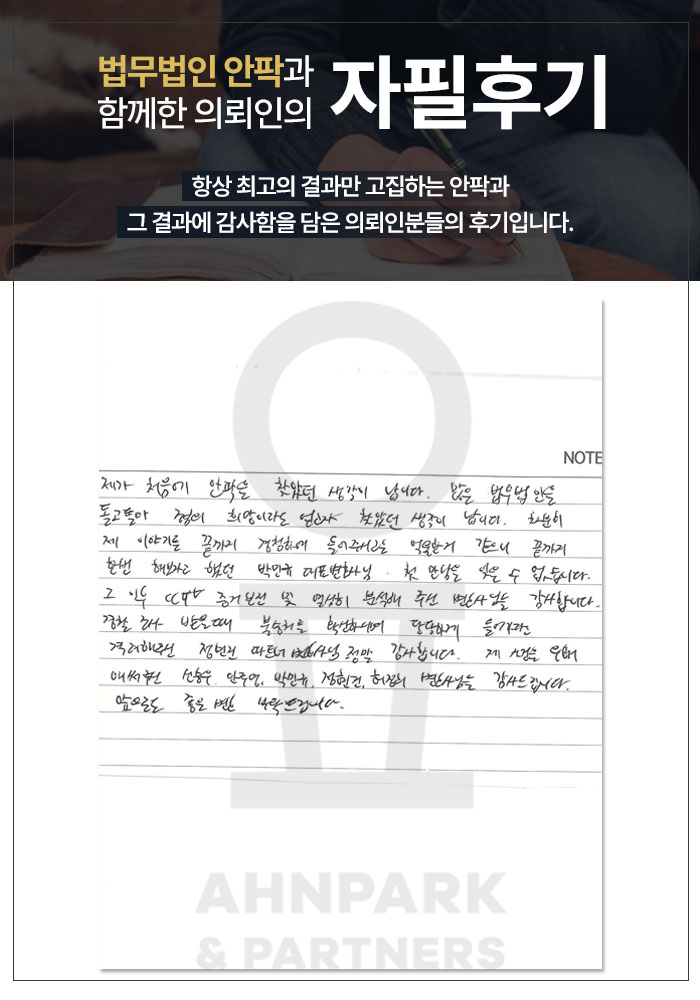 법무법인 안팍과
함께한 의뢰인의
자필후기
항상 최고의 결과만 고집하는 안팍과
그 결과에 감사함을 담은 의뢰인분들의 후기입니다.
NOTE
제가 처음에 안팍을 찾았던 생각이 납니다. 많은 법무법인들
돌고돌아 희망이라도 찾았던 생각이 납니다.
제 이야기를 끝까지 경청하여 들어주시고는 억울한거 같으니 끝까지
한번 해보자고 했던 박민규 대표변호사님. 첫 만남을 잊을 수 없습니다.
그 이후 CCTV 증거보전 및 열심히 분석해 주신 변호사님들 감사합니다.
경찰 조사 받을때 당당하게
격려해주신 파트너 변호사님 정말 감사합니다. 제 사건을 위해
애써주신 안주영, 박민규, 변호사님들 감사드립니다.
앞으로도 좋은 변호 부탁드립니다.
AHNPARK
& PARTNERS